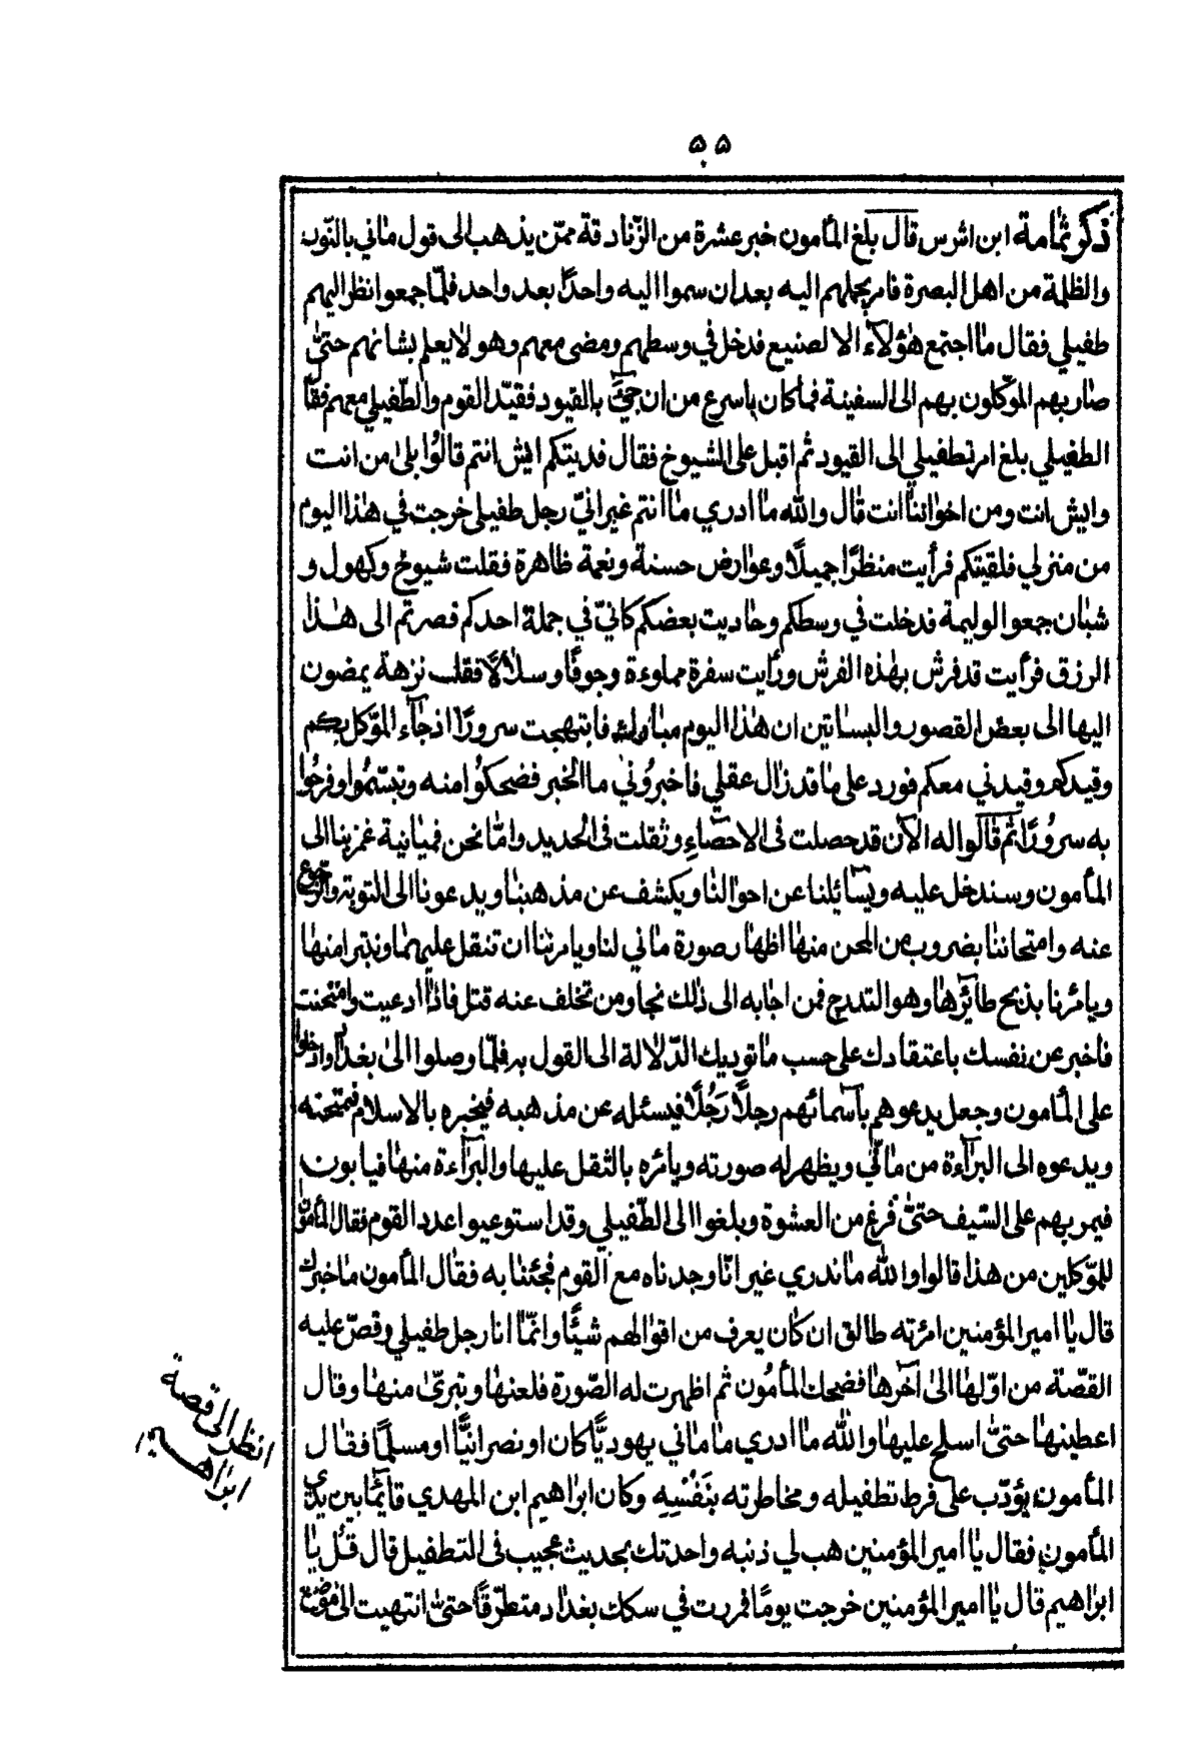 ٥٥
ذكر ثمامة ابن اشرس قال بلغ المأمون خبر عشرة من الزّنادقة ممّن يذهب الى قول ماني بالنّور
والظلمة من اهل البصرة فامر بحملهم اليه بعد ان سموا اليه واحدًا بعد واحد فلمّا جمعوا نظر اليهم
طفيلي فقال ما اجتمع هؤلآء الا لصنيع فدخل في وسطهم ومضى معهم وهو لا يعلم بشانهم حتىّ
صار بهم الموّكلون بهم الى السفينة فما كان باسرع من ان جيٓئ بالقيود فقيّد القوم والطّفيلي معهم فقا
الطفيلي بلغ امر تطفيلي الى القيود ثم اقبل على الشيوخ فقال فديتكم ايش انتم قالوُا بلىٰ من انت
وايش انت ومن اخواننا انت قال والله ما ادري ما انتم غير انيّ رجل طفيلي خرجت في هذا اليوم
من منزلي فلقيتكم فرأيت منظرًا جميلًا وعوارض حسنة ونعمة ظاهرة فقلت شيوخ وكهول و
شبان جمعوا لوليمة فدخلت في وسطكم وحاديت بعضكم كانيّ في جملة احدكم فصرتم الى هذا
الرزق فرأيت قد فرش بهذه الفرش ورأيت سفرة مملوءة وجوفًا وسلالًا فقلت نزهة يمضون
اليها الى بعض القصور والبساتين ان هذا اليوم مبارك فابتهجت سرورًا اذ جآء الموّكل بكم
وقيدكم وقيدني معكم فورد على ما قد زال عقلي فاخبروُني ما الخبر فضحكوُا منه وتبسّموُا وفرحُوا
به سروُرًا ثم قالوا له الآن قد حصلت فى الاحصآءِ وثقلت فى الحديد وامّا نحن فمانية غمز بنا الى
المأمون وسندخل عليه ويسآئلنا عن احوالنا ويكشف عن مذهبنا ويدعونا الى التوبة والرّجوع
عنه وامتحاننا بضروب من المحن منها اظهار صورة ماني لنا ويامرنا ان تنقل عليهما ونتبرا منها
ويامرنا بذبح طآئرها وهو التدرج فمن اجابه الى ذلك نجا ومن تخلف عنه قتل فاذا ادعيت وامتحنت
فاخبر عن نفسك باعتقادك على حسب ما توديك الدّلالة الى القول به فلمّا وصلوا الى بغداد وادخلوا
على المأمون وجعل يدعوهم بآسمائهم رجلًا رَجُلًا فيسئله عن مذهبه فيخبره بالاسلام فيمتحنه
ويدعوه الى البرآءة من ماني ويظهر له صورته ويامره بالتفل عليها والبرآءة منها فيابون
فيمر بهم على السّيف حتىّ فرغ من العشوة وبلغوا الى الطّفيلي وقد استوعبوا عدد القوم فقال المأمون
للموّكلين من هذا قالوا والله ما ندري غير انّا وجدناه مع القوم فجئنا به فقال المأمون ما خبرك
قال يا امير المؤمنين امرٔته طالق ان كان يعرف من اقوالهم شيئًا وانّما انا رجل طفيلي وقصّ عليه
القصّة من اوّلها الى آخرها فضحك المأمُون ثم اظهرت له الصّورة فلعنها وتبرّىٰ منها وقال
اعطينها حتىّ اسلح عليها والله ما ادري ما ماني يهوديًّا كان او نصرانيًّا او مسلمًا فقال
المأمون يؤدّب على فرط تطفيله ومخاطرته بنَفْسِهِ وكان ابراهيم ابن المهدي قآئمًا بين يدي
المأمون فقال يا امير المؤمنين هب لي ذنبه واحدثك بحديث عجيب فى التطفيل قال قُل يا
ابراهيم قال يا امير المؤمنين خرجت يومًا فمررت في سكك بغداد متطرّقًا حتىّ انتهيت الى موضع
انظر الى قصة
ابراهيم